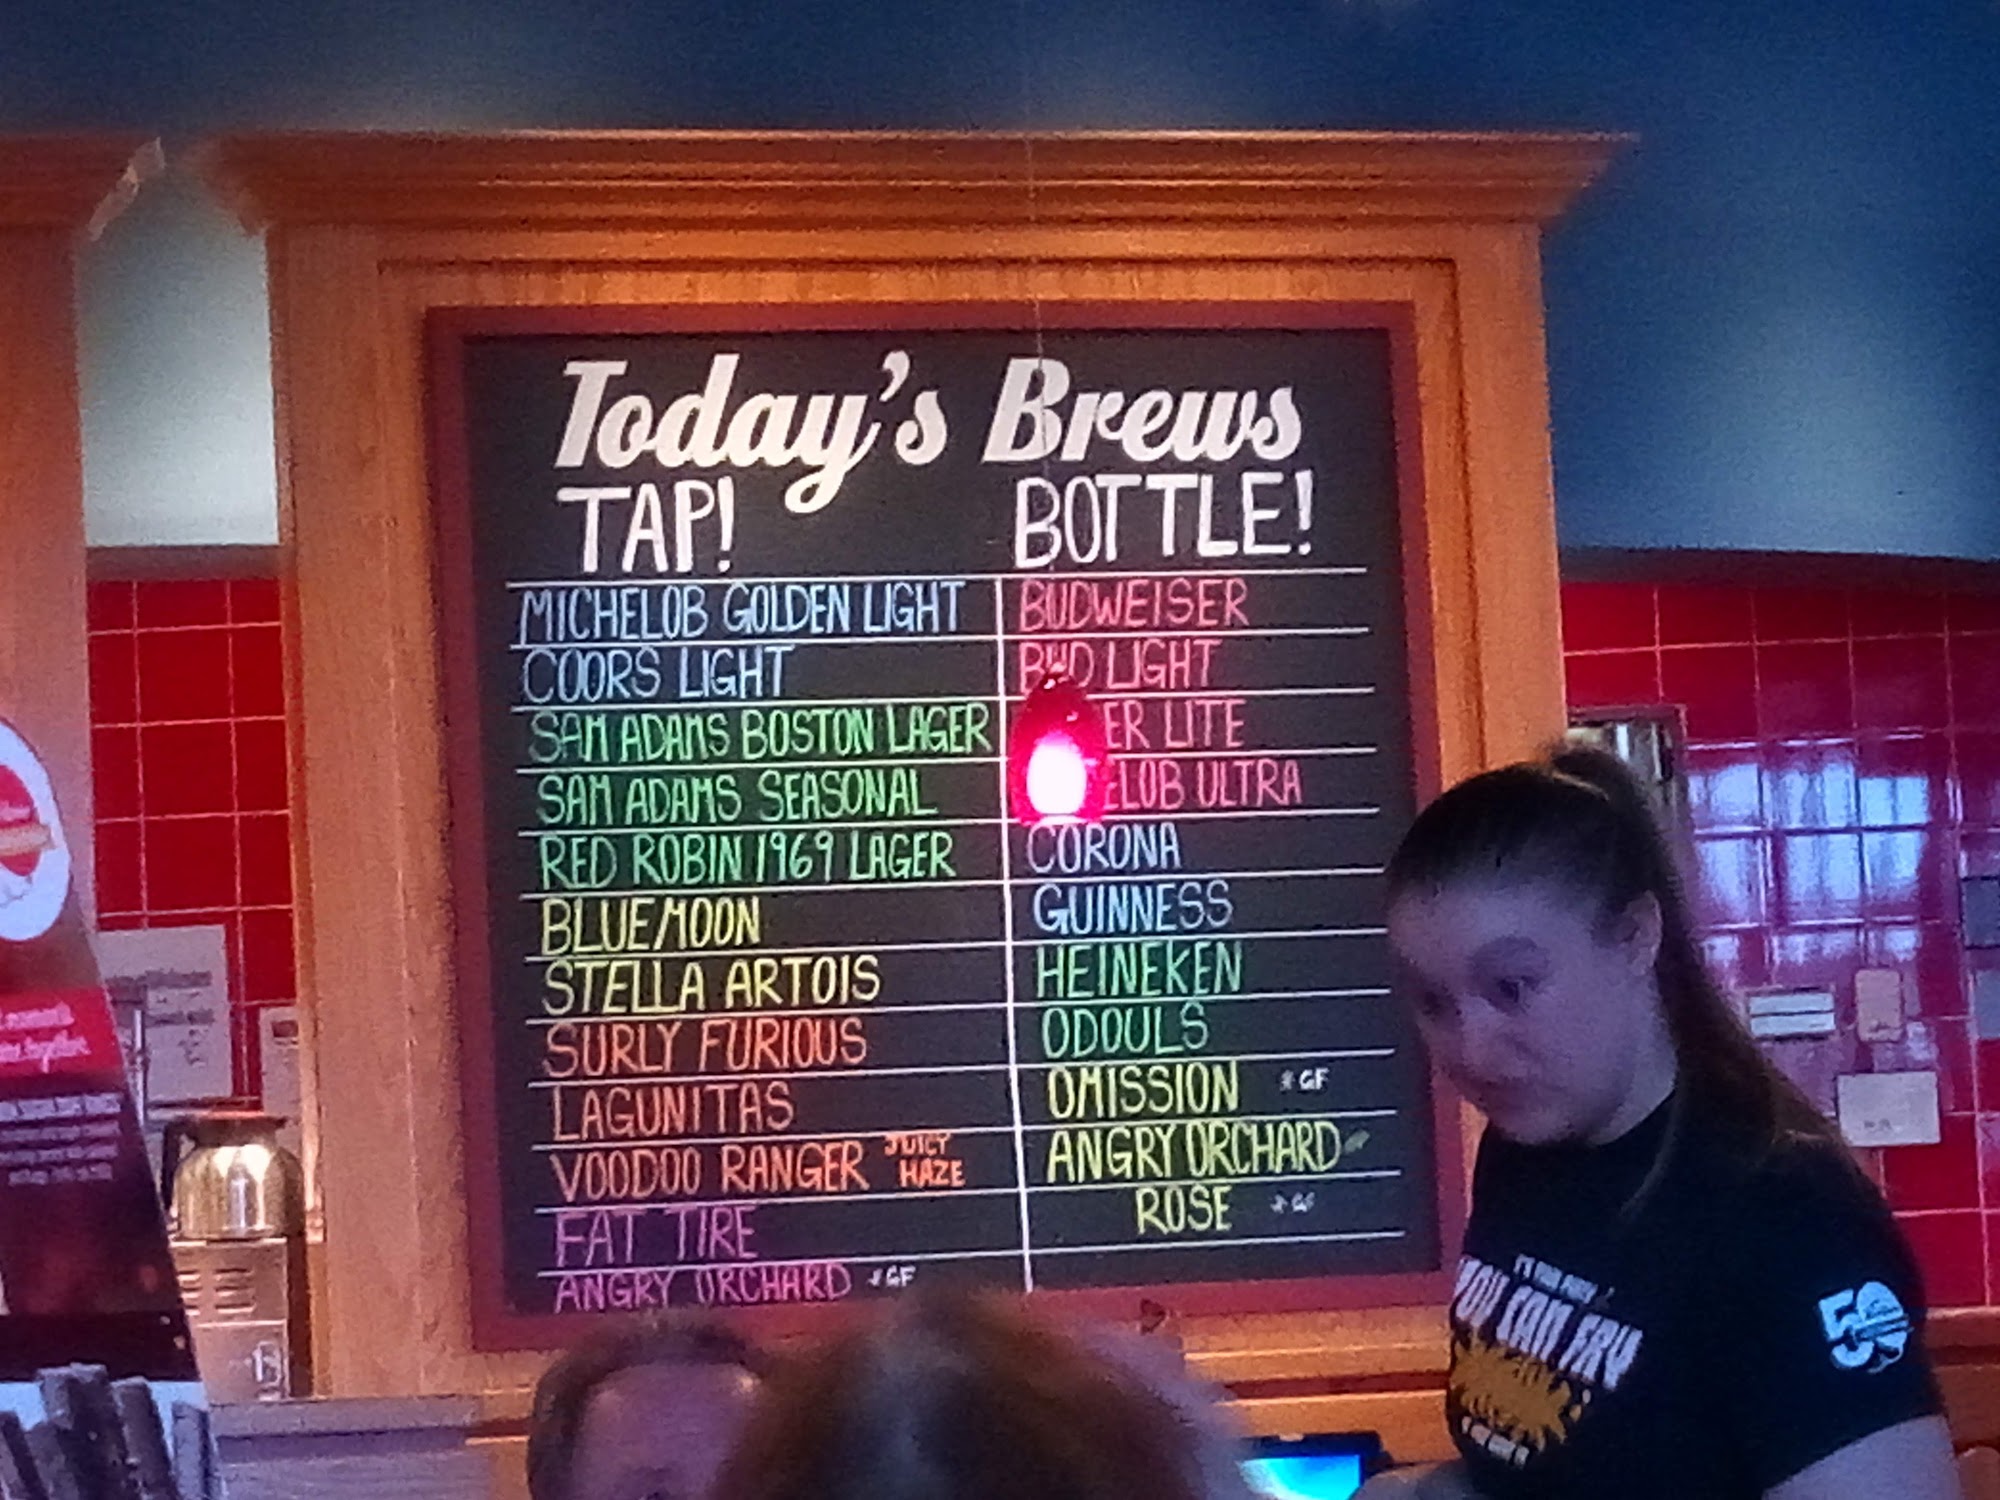 Today's Brews
TAP!
MICHELOB GOLDEN LIGHT
COORS LIGHT
SAM ADAMS BOSTON LAGER
SAM ADAMS SEASONAL
RED ROBIN 1969 LAGER
BLUEMOON
STELLA ARTOIS
SURLY FURIOUS
LAGUNITAS
VOODOO RANGER JUICY HAZE
FAT TIRE
ANGRY ORCHARD *GF
BOTTLE!
BUDWEISER
BUD LIGHT
ER LITE
ELOB ULTRA
CORONA
GUINNESS
HEINEKEN
ODOULS
OMISSION *GF
ANGRY ORCHARD
ROSE *GF
YOU SAY FRY
50